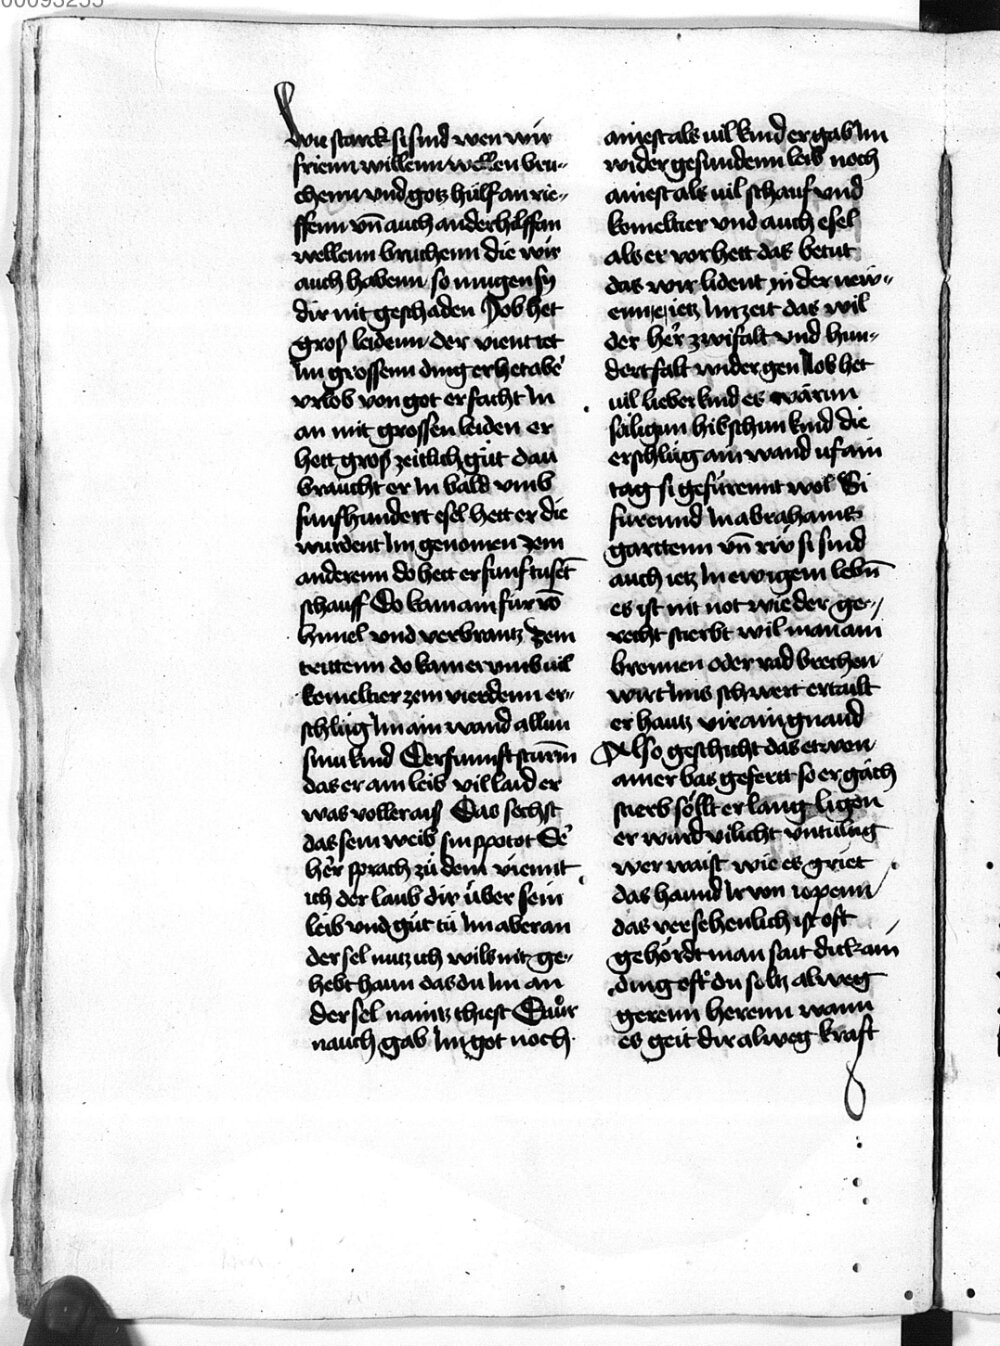 00093255
wie starck si sind wen wir
frienn willenn wellen bru-
chenn vnd gotz hülf an rie-
ffenn vn̄ auch ander hilffan
wellenn bruchenn die wir
auch habenn so mugen sy
dir nit geschaden Job het
groß leidenn der vient tet
Im grossenn ding er het abe᷑
vrlob von got er facht In
an mit grossen leiden er
hett groß zeitlich gůt dau
braucht er In bald vmb
funfhundert esel hett er die
wurdent Im genomen zem
anderenn do hett er funf tuset̄
schauff Do kam ain für vō
himel vnd verbrantz Zem
trittenn do kam er vmb uil
kemeltier zem vierdenn er-
schlůg Im ain wand allun
sinu kind Der funnft sturm̄
das er am leib vil laid er
was voller aiß Das sechst
das sein weib sin spotot De᷑
her᷑ sprach zů dem viennt
ich der laub dir über sein
leib vnd gůt tů Im aber an
der sel nutz ich wils nit ge-
hebt haun das du Im an
der sel naintz thiest Daur
nauch gab Im got noch
aniest als uil kind er gab Im
wider gesundenn leib noch
aniest als uil schauf vnd
komeltier vnd auch esel
als er vor hett das betut
das wir lident in der new-
enn e ietz Im zeit das wil
der her᷑ zwifalt vnd hun-
dert falt wider gen Job het
uil lieber kind es wärun
säligun hibschun kind die
erschlůg ain wand uf ain
tag si gefürennt wol Si
furennd In abrahams
garttenn vn̄ rův si sind
auch ietz In ewigem lebn̄
es ist nit not wie der ge-
recht stierbt wil man am
bronnen oder rad brechen
wirt Ims schwert ertailt
er hautz vir ain gnaud
Also geschicht das etwen
ainer bas gefertt so er gäch
stierb söllt er lang ligen
er wurd vilicht vntultig
wer waist wie es griet
das haund Ir von
das versehenlich ist oft
gehördt man sait dick ain
ding oft du soltz alweg
gerenn herenn wann
es geit dir alweg kraft